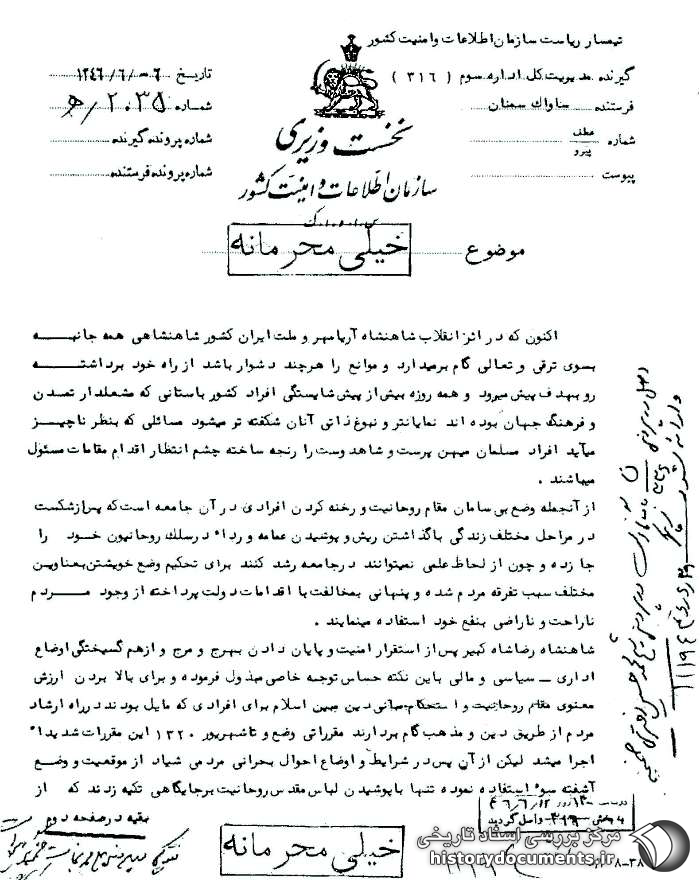 تیمسار ریاست سازمان اطلاعات و امنیت کشور
گیرنده مدیریت کل اداره سوم ( ۳۱۶ )
فرستنده ساواک سمنان
شماره عطف
پیرو
پیوست
تاریخ ۶-/۶/۱۳۴۶
شماره ۲۰۳۵/ه‍
شماره پرونده گیرنده
شماره پرونده فرستنده
نخست وزیری
سازمان اطلاعات و امنیت کشور
س.ا.و.ا.ک
موضوع
خیلی محرمانه
اکنون که در اثر انقلاب شاهنشاه آریامهر و ملت ایران کشور شاهنشاهی همه جانبه
بسوی ترقی و تعالی گام برمیدارد و موانع را هرچند دشوار باشد از راه خود برداشته
رو بهدف پیش میرود و همه روزه بیش از پیش شایستگی افراد کشور باستانی که مشعلدار تمدن
و فرهنگ جهان بوده اند نمایانتر و نبوغ ذاتی آنان شکفته تر میشود مسائلی که بنظر ناچیز
میآید افراد مسلمان میهن پرست و شاهدوست را رنجه ساخته چشم انتظار اقدام مقامات مسئول
میباشند .
از آنجمله وضع بی سامان مقام روحانیت و رخنه کردن افرادی در آن جامعه است که پس از شکست
در مراحل مختلف زندگی با گذاشتن ریش و پوشیدن عمامه و رداء در سلک روحانیون خود را
جا زده و چون از لحاظ علمی نمیتوانند در جامعه رشد کنند برای تحکیم وضع خویشتن بعناوین
مختلف سبب تفرقه مردم شده و پنهانی بمخالفت با اقدامات دولت پرداخته از وجود مردم
ناراحت و ناراضی بنفع خود استفاده مینمایند .
شاهنشاه رضاشاه کبیر پس از استقرار امنیت و پایان دادن بهرج و مرج و ازهم گسیختگی اوضاع
اداری – سیاسی و مالی باین نکته حساس توجه خاصی مبذول فرموده و برای بالا بردن ارزش
معنوی مقام روحانیت و استحکام مبانی دین مبین اسلام برای افرادی که مایل بودند در راه ارشاد
مردم از طریق دین و مذهب گام بردارند مقرراتی وضع و تا شهریور ۱۳۲۰ این مقررات شدیداً
اجرا میشد لیکن از آن پس در شرایط و اوضاع احوال بحرانی مردمی شیاد از موقعیت و وضع
آشفته سوء استفاده نموده تنها با پوشیدن لباس مقدس روحانیت بر جایگاهی تکیه زدند که از
بقیه در صفحه دوم
خیلی محرمانه
مرکز بررسی اسناد تاریخی
historydocuments.ir